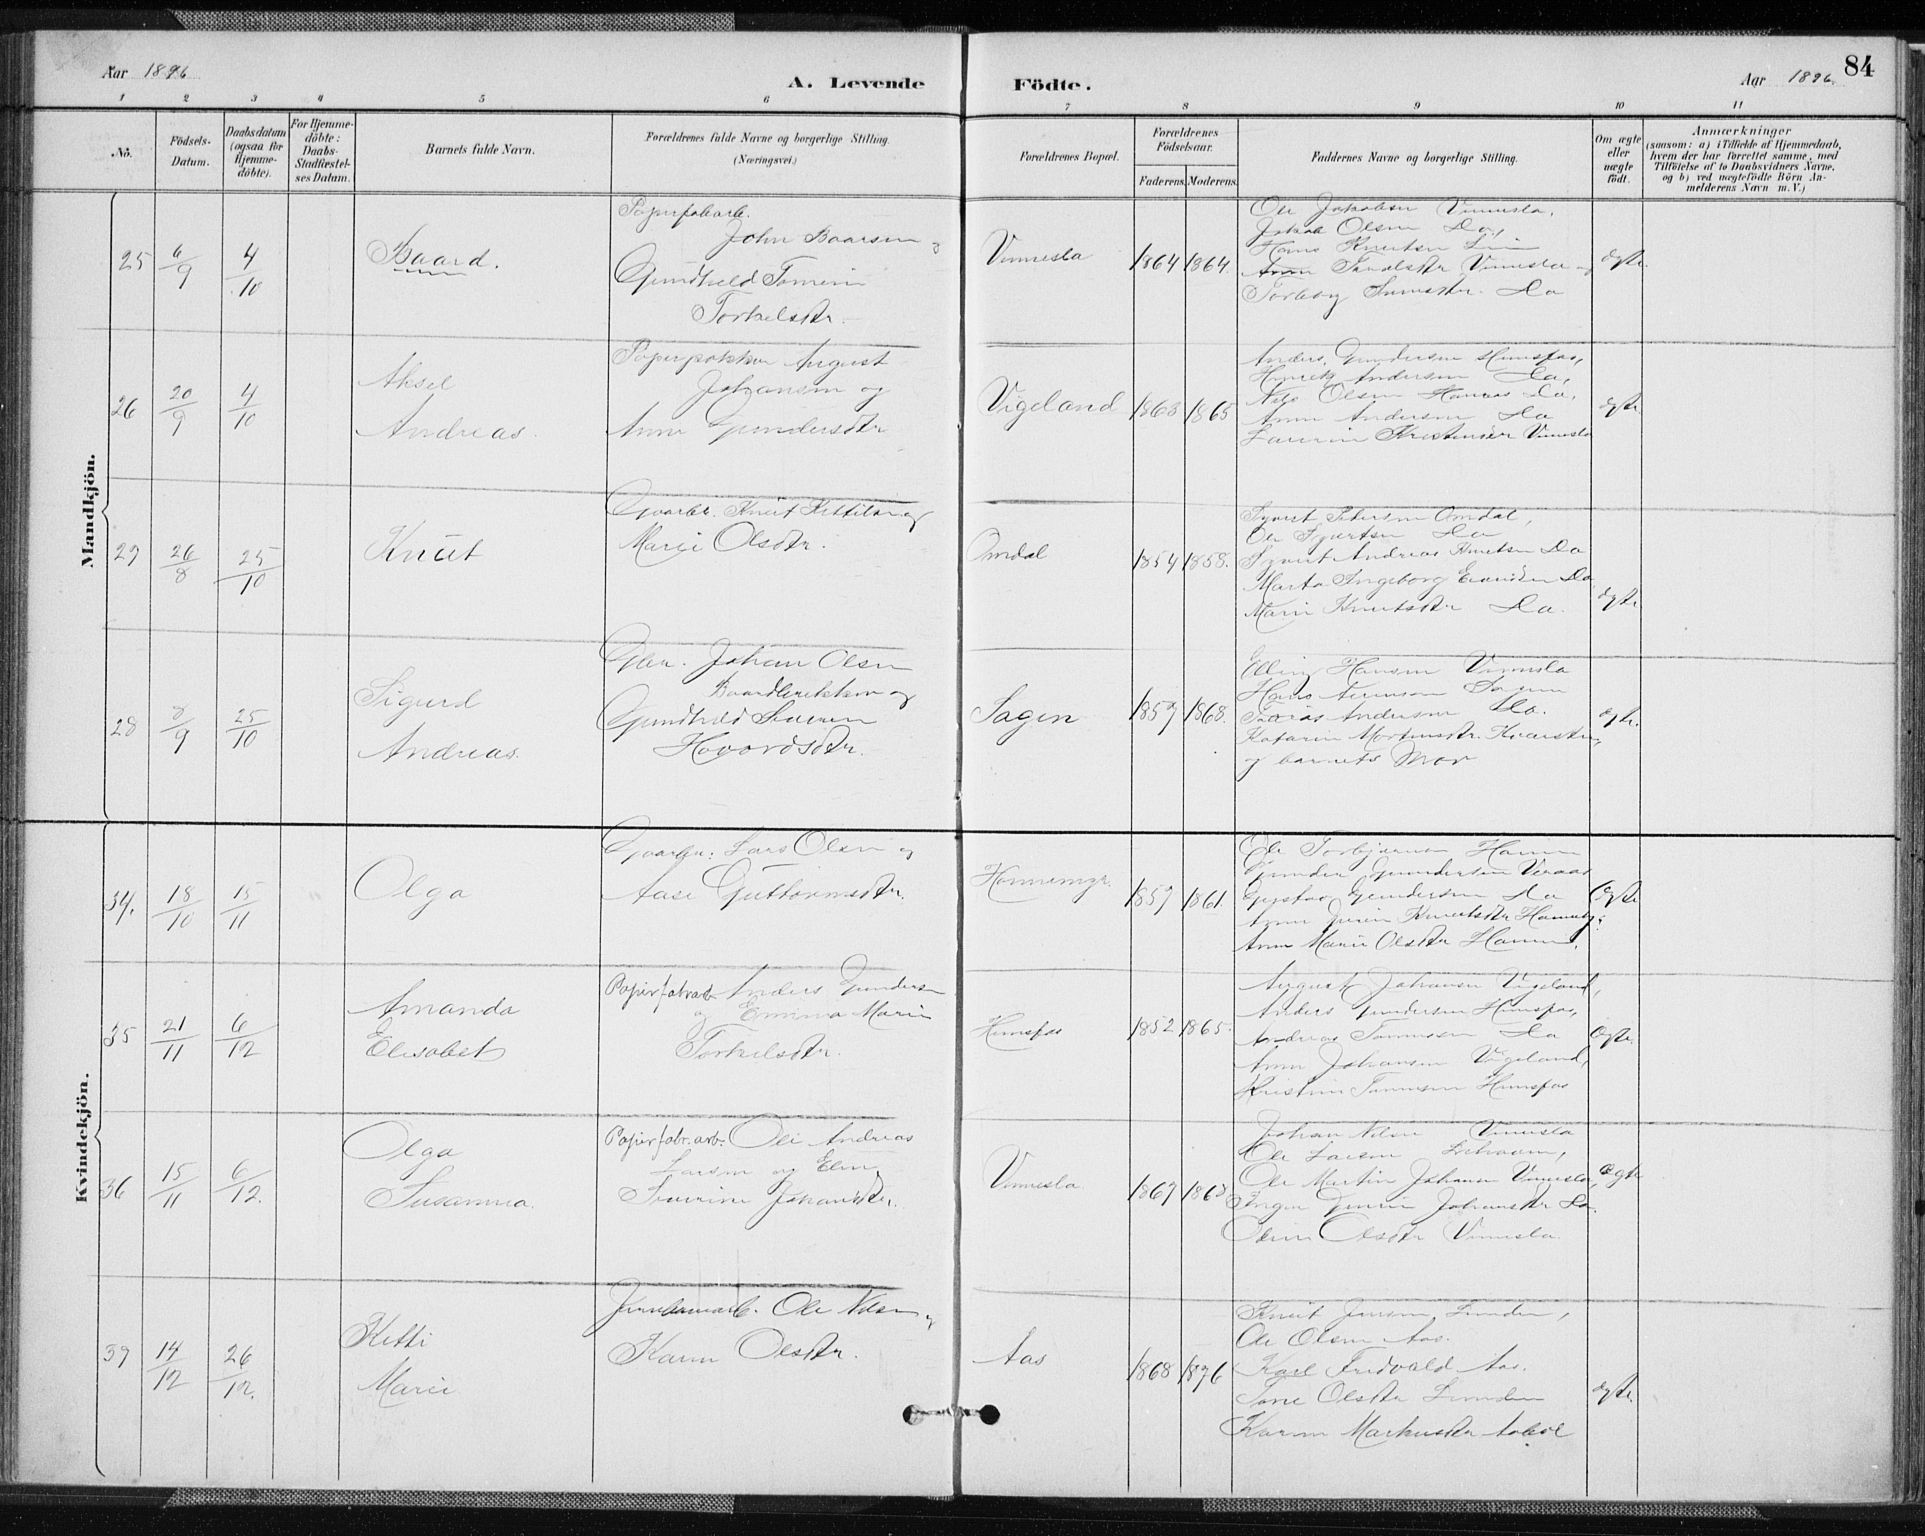 Aar 1896
A. Levende
Födte.
Aar 1896.
84
1 2 3 4 5 6 7 8 9 10 11
No.
Födsels-
Datum.
Daabsdatum
(ogsaa for
Hjemme-
döbte).
For Hjemme-
döbte:
Daabs-
Stadfæstel-
ses Datum.
Barnets fulde Navn.
Forældrenes fulde Navne og borgerlige Stilling.
(Næringsvei.)
Forældrenes Bopæl.
Forældrenes
Födselsaar.
Faderens. Moderens.
Faddernes Navne og borgerlige Stilling.
Om ægte
eller
uægte
født.
Anmærkninger
(saasom: a) i Tilfælde af Hjemmedaab,
hvem der har forrettet samme, med
Tilföielse af to Daabsvidners Navne,
og b) ved uægtefödte Börn An-
melderens Navn m. V.)
Mandkjön.
25
6/9
4/10
Baard.
Papirfabarb.
John Baarsen og
Gundheld Tomine
Torkelsdtr.
Vennesla
1864 1864
Ole Jakobsen Vennesla,
Jakob Olsen Do,
Hans Knutsen
Vennesla og
Torborg Do
ægte
26
20/9
4/10
Aksel
Andreas.
Papirpakker August
Johansen og
Anne Gundersdtr
Vigeland
1863 1865
Anders Gundersen Hunsfos,
Henrik Andersen Do,
Nils Olsen Do,
Anne Andersen Do
Vennesla
ægte
27
26/8
25/10
Knut
Gaarbr. Knut Kittilsen og
Marie Olsdtr.
Omdal
1854 1858.
Syvert Petersen Omdal,
Ole Syvertsen Do
Syvert Andreas Knutsen Do
Marta Ingeborg Do
Marie Knutsdtr Do.
ægte
28
8/9
25/10
Sigurd
Andreas.
Gbr. Johan Olsen
og
Gundheld Severine
Hovordsdtr.
Sagen
1859 1868.
Elling Hansen Vennesla
Hans Sagen
Tobias Andersen Do.
Katarine Mortensdtr.
og barnets Mor
ægte.
Kvindekjön.
34.
18/10
15/11
Olga
Gaarbr. Lars Olsen og
Aase Guttormsdtr.
Honnemyr.
1859 1861.
Ole Torbjørnsen
Gunder Gundersen Veraas
Gustav Gundersen Do
Anne Knutsdtr
Anne Marie Olsdtr
Ægte
35
21/11
6/12
Amanda
Elisabet
Papirfabrarb. Anders Gundersen
og Emma Marie
Torkelsdtr.
Hunsfos
1852 1865.
August Johansen Vigeland,
Anders Gundersen Hunsfos,
Andreas Tommesen Do
Anne Johansen Vigeland,
Kristine Tommesen Hunsfos
Ægte.
36
15/11
6/12.
Olga
Susanna.
Papirfabr.arb. Ole Andreas
Larsen og Eline
Severine Johansdtr.
Vennesla
1867 1868
Johan Nilsen Vennesla
Ole Larsen
Ole Martin Johansen Vennesla,
Johansdtr Do.
Olsdtr Vennesla.
ægte
37
14/12
26/12.
Kitti
Marie
Jernbanearb. Ole Nilsen og
Karen Olsdtr.
Aas
1868 1876
Knut Jensen Lunden,
Ole Olsen Aas.
Karl Fredvald Aas.
Tone Olsdtr Lunden
Karen Markusdtr
ægte